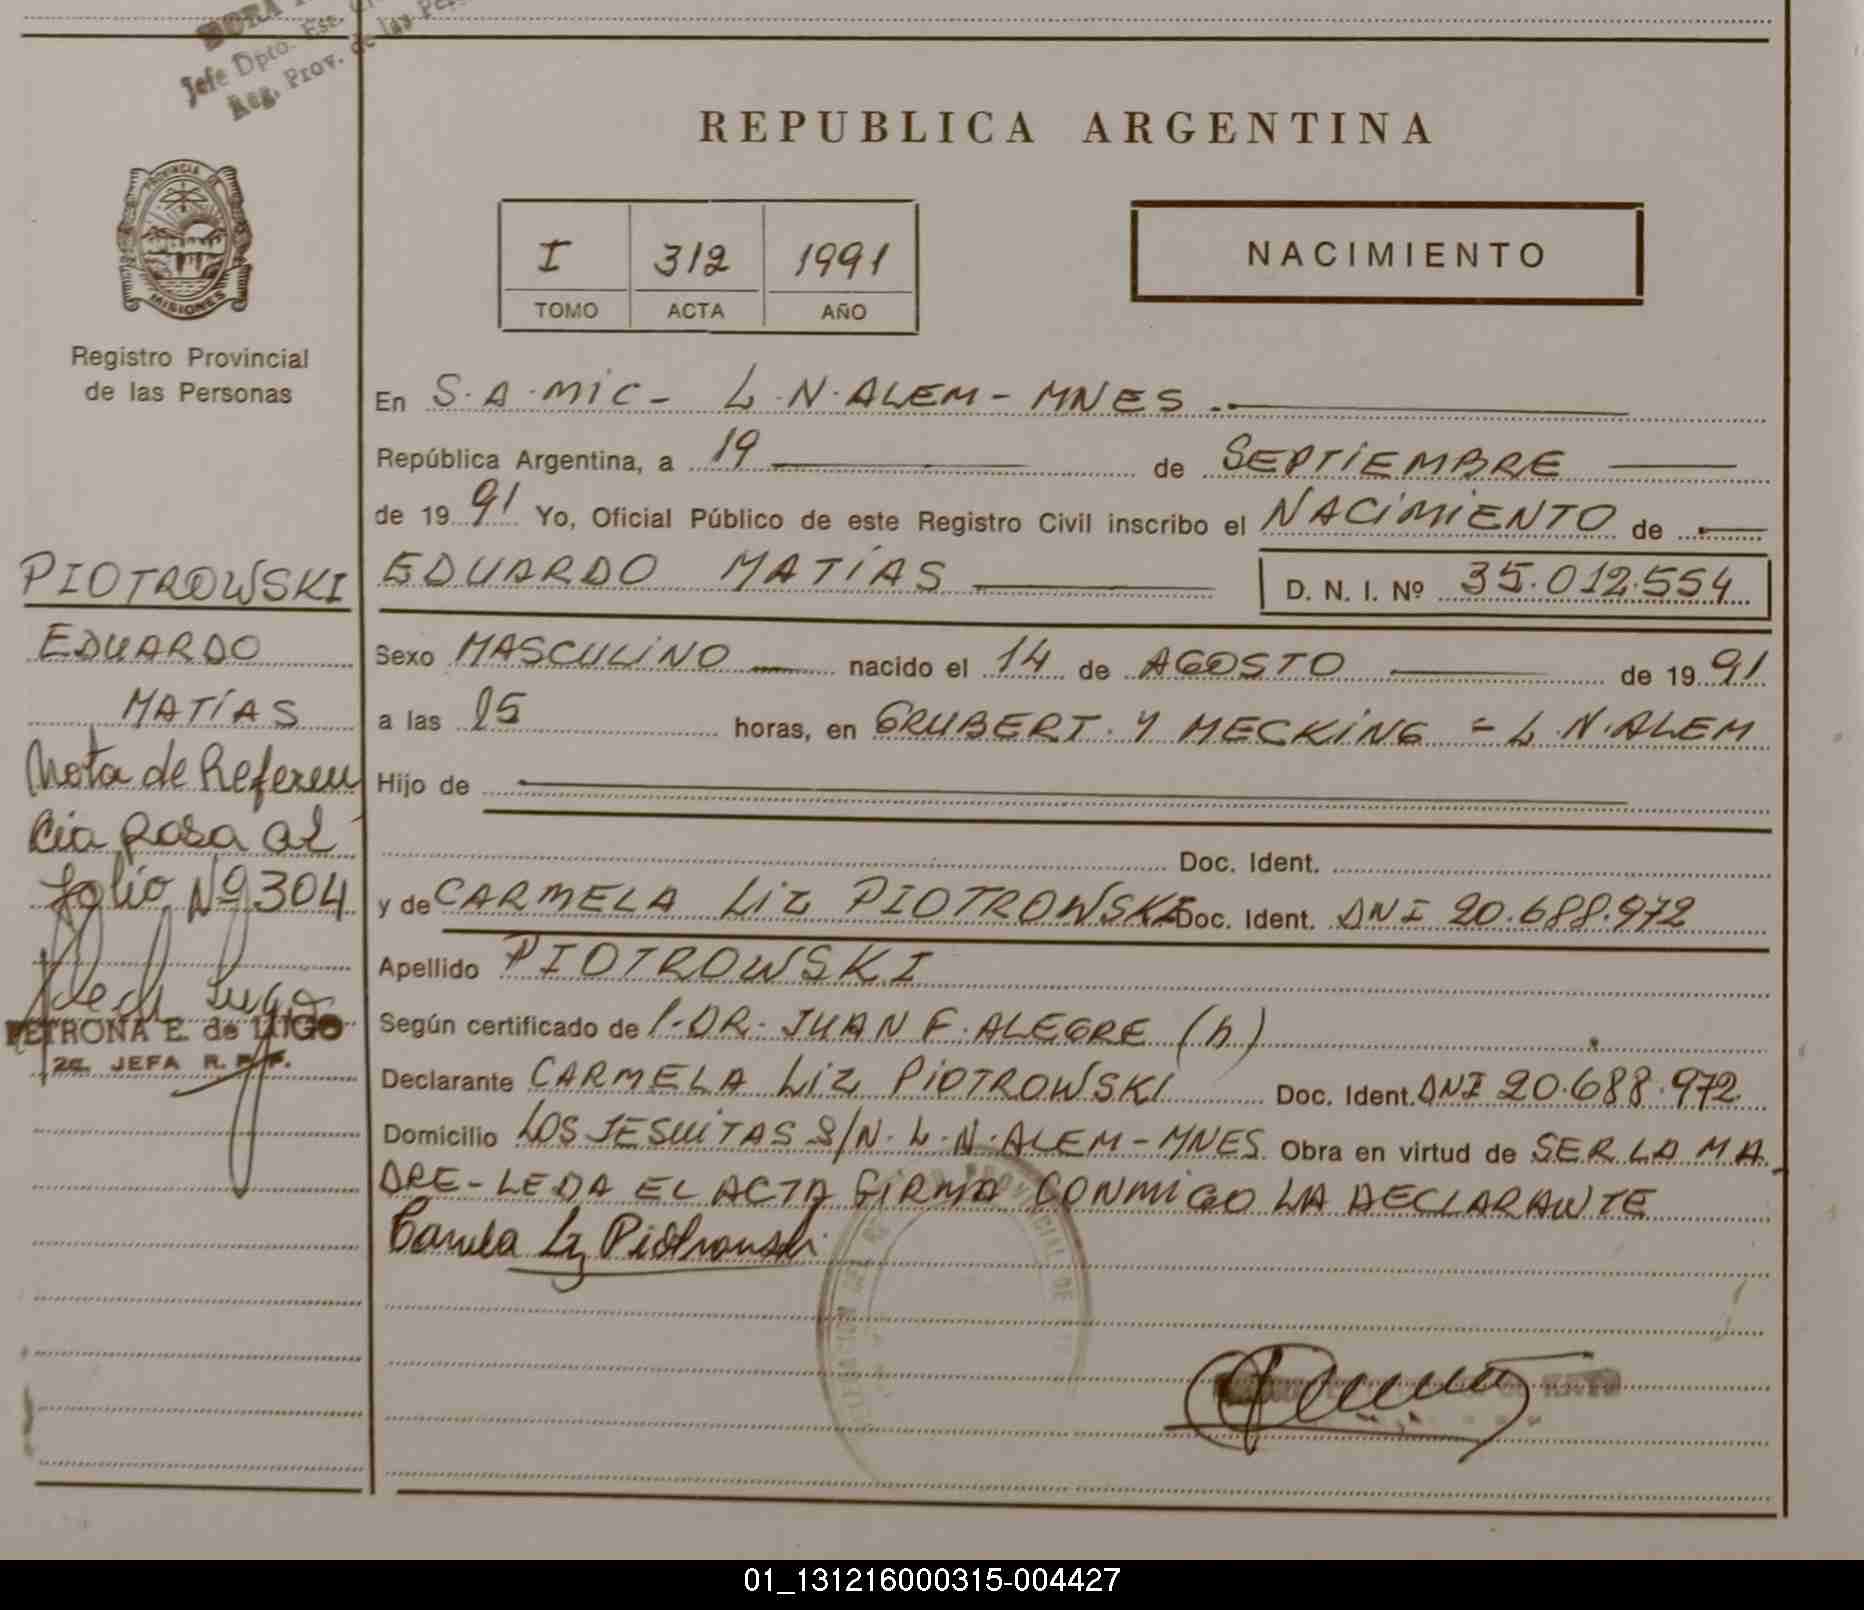 Jefe Dpto.
Reg. Prov. de las
REPUBLICA ARGENTINA
PROVINCIA DE
MISIONES
I 312 1991
TOMO ACTA AÑO
NACIMIENTO
Registro Provincial
de las Personas
En S.A.MIC - L.N. ALEM - MNES.
República Argentina, a 19 de SEPTIEMBRE
de 1991 Yo, Oficial Público de este Registro Civil inscribo el NACIMIENTO de
PIOTROWSKI
EDUARDO MATÍAS
D. N. I. Nº 35.012.554
EDUARDO
Sexo MASCULINO nacido el 14 de AGOSTO de 1991
MATÍAS
a las 15 horas, en GRUBERT. Y MECKING = L.N. ALEM
Nota de Referen
Hijo de
cia Rosa al
Doc. Ident.
folio Nº 304
y de CARMELA LIZ PIOTROWSKI Doc. Ident. DNI 20.688.972
Apellido PIOTROWSKI
PETRONA E. de LUGO
2a. JEFA R. P. P.
Según certificado de l-DR- JUAN F. ALEGRE (h)
Declarante CARMELA LIZ PIOTROWSKI Doc. Ident. DNI 20.688.972
Domicilio LOS JESUITAS S/N. L.N. ALEM - MNES. Obra en virtud de SER LA MA-
DRE - LEDA EL ACTA FIRMA CONMIGO LA DECLARANTE
Carmela Liz Piotrowski
01_131216000315-004427